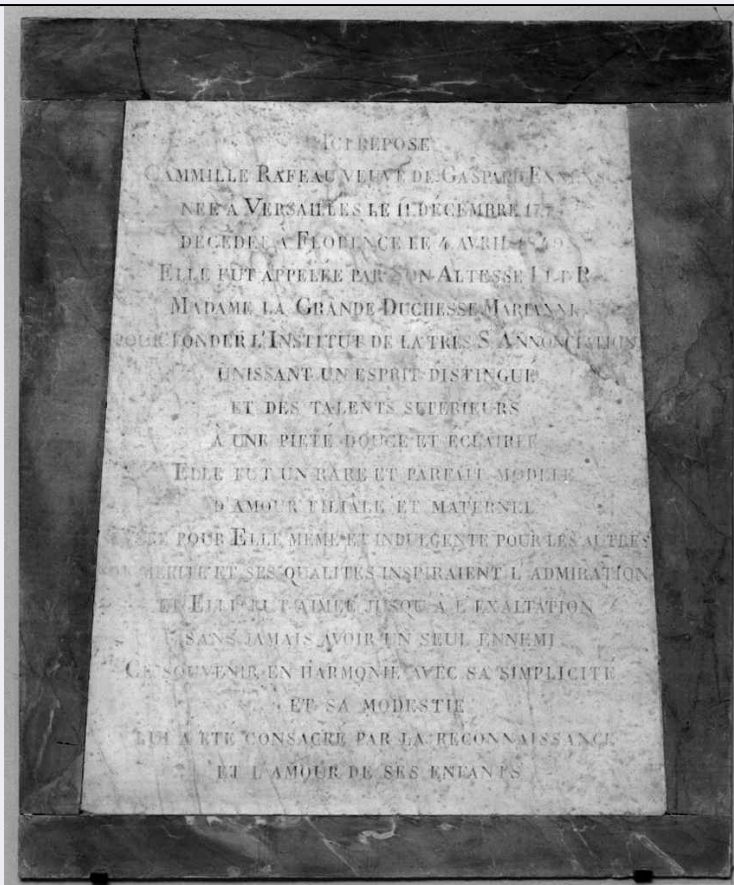 ICI REPOSE
CAMMILLE RAFEAU VEUVE DE GASPARD
NEE A VERSAILLES LE 11 DECEMBRE
DECEDEE A FLORENCE LE 4 AVRIL 1849
ELLE FUT APPELEE PAR SON ALTESSE I ET R
MADAME LA GRANDE DUCHESSE MARIANNE
POUR FONDER L'INSTITUT DE LA TRES S ANNONCIATION
UNISSANT UN ESPRIT DISTINGUÉ
ET DES TALENTS SUPERIEURS
À UNE PIETE DOUCE ET ECLAIREE
ELLE FUT UN RARE ET PARFAIT MODELE
D'AMOUR FILIALE ET MATERNEL
POUR ELLE MEME ET INDULGENTE POUR LES AUTRES
MERITE ET SES QUALITES INSPIRAIENT L'ADMIRATION
ET ELLE FUT AIMEE JUSQU'A L'EXALTATION
SANS JAMAIS AVOIR UN SEUL ENNEMI
CE SOUVENIR EN HARMONIE AVEC SA SIMPLICITÉ
ET SA MODESTIE
LUI A ETE CONSACRÉ PAR LA RECONNAISSANCE
ET L'AMOUR DE SES ENFANTS